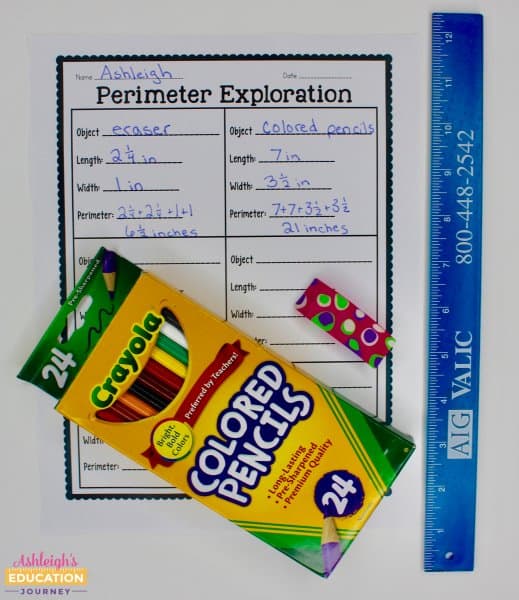 Name Ashleigh Date
Perimeter Exploration
Object eraser
Length: 2 1/4 in
Width: 1 in
Perimeter: 2 1/4 + 2 1/4 + 1 + 1
6 1/2 inches
Object colored pencils
Length: 7 in
Width: 3 1/2 in
Perimeter: 7+7+3 1/2+3 1/2
21 inches
Object
Length:
Width:
Perimeter:
Object
Length:
Pre-Sharpened
24
Crayola
Preferred by Teachers!
Bright,
Bold
Colors
COLORED
PENCILS
• Long-Lasting
• Pre-Sharpened
• Premium Quality
24
AIG VALIC 800-448-2542
1 2 3 4 5 6 7 8 9 10 11 12
Ashleigh's
EDUCATION
JOURNEY